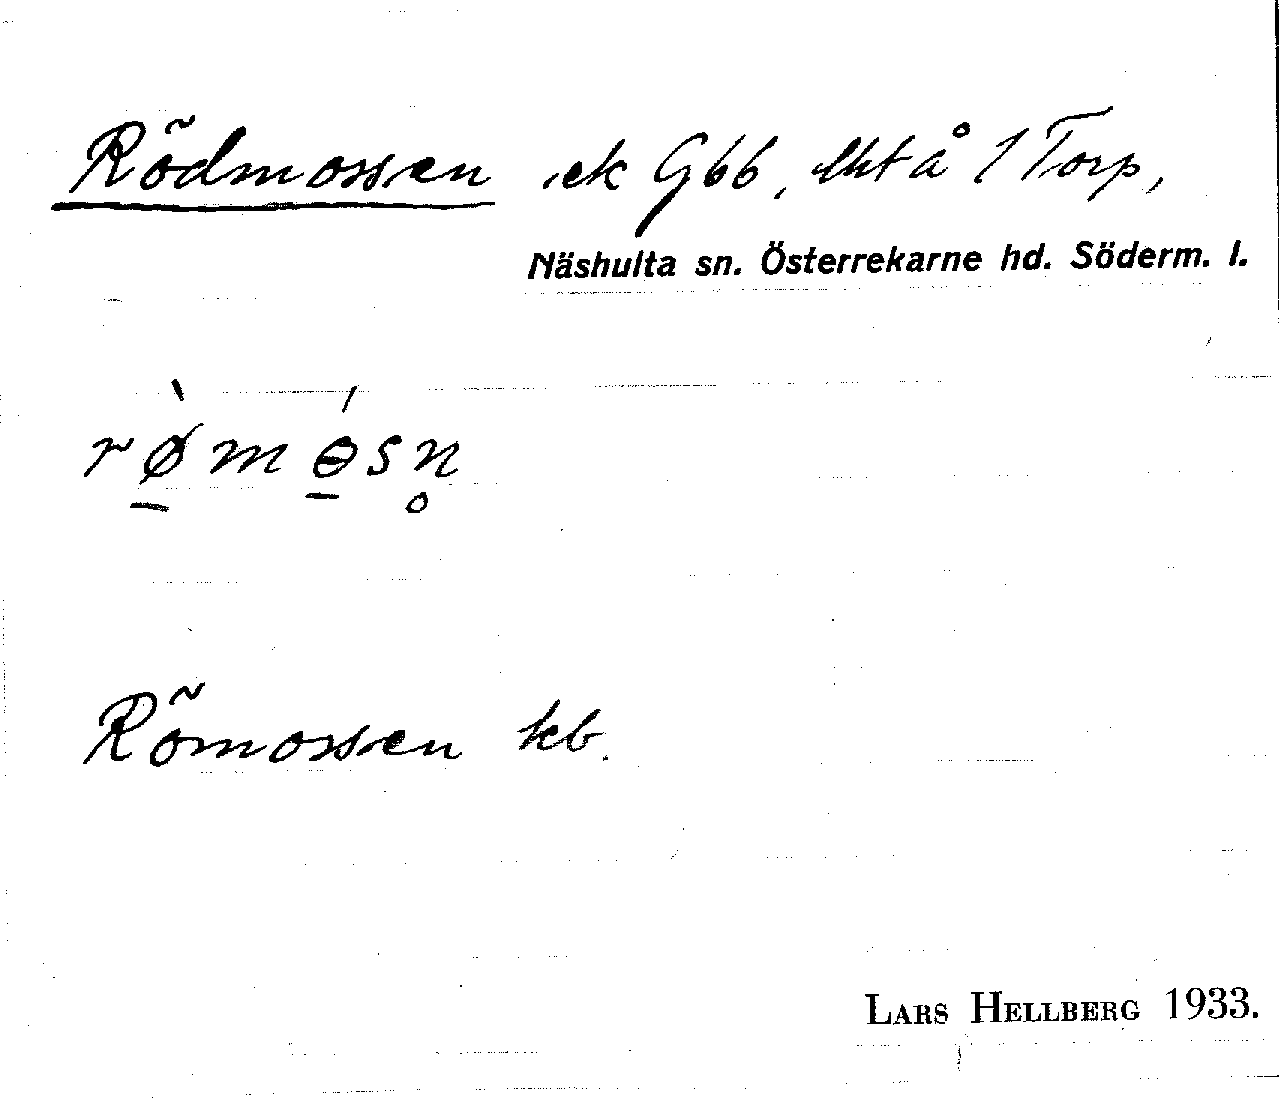 Rödmossen ek G66, å 1 Torp,
Näshulta sn. Österrekarne hd. Söderm. l.
rø̲̀mɵ̲́sn̥
Römossen kb.
LARS HELLBERG 1933.